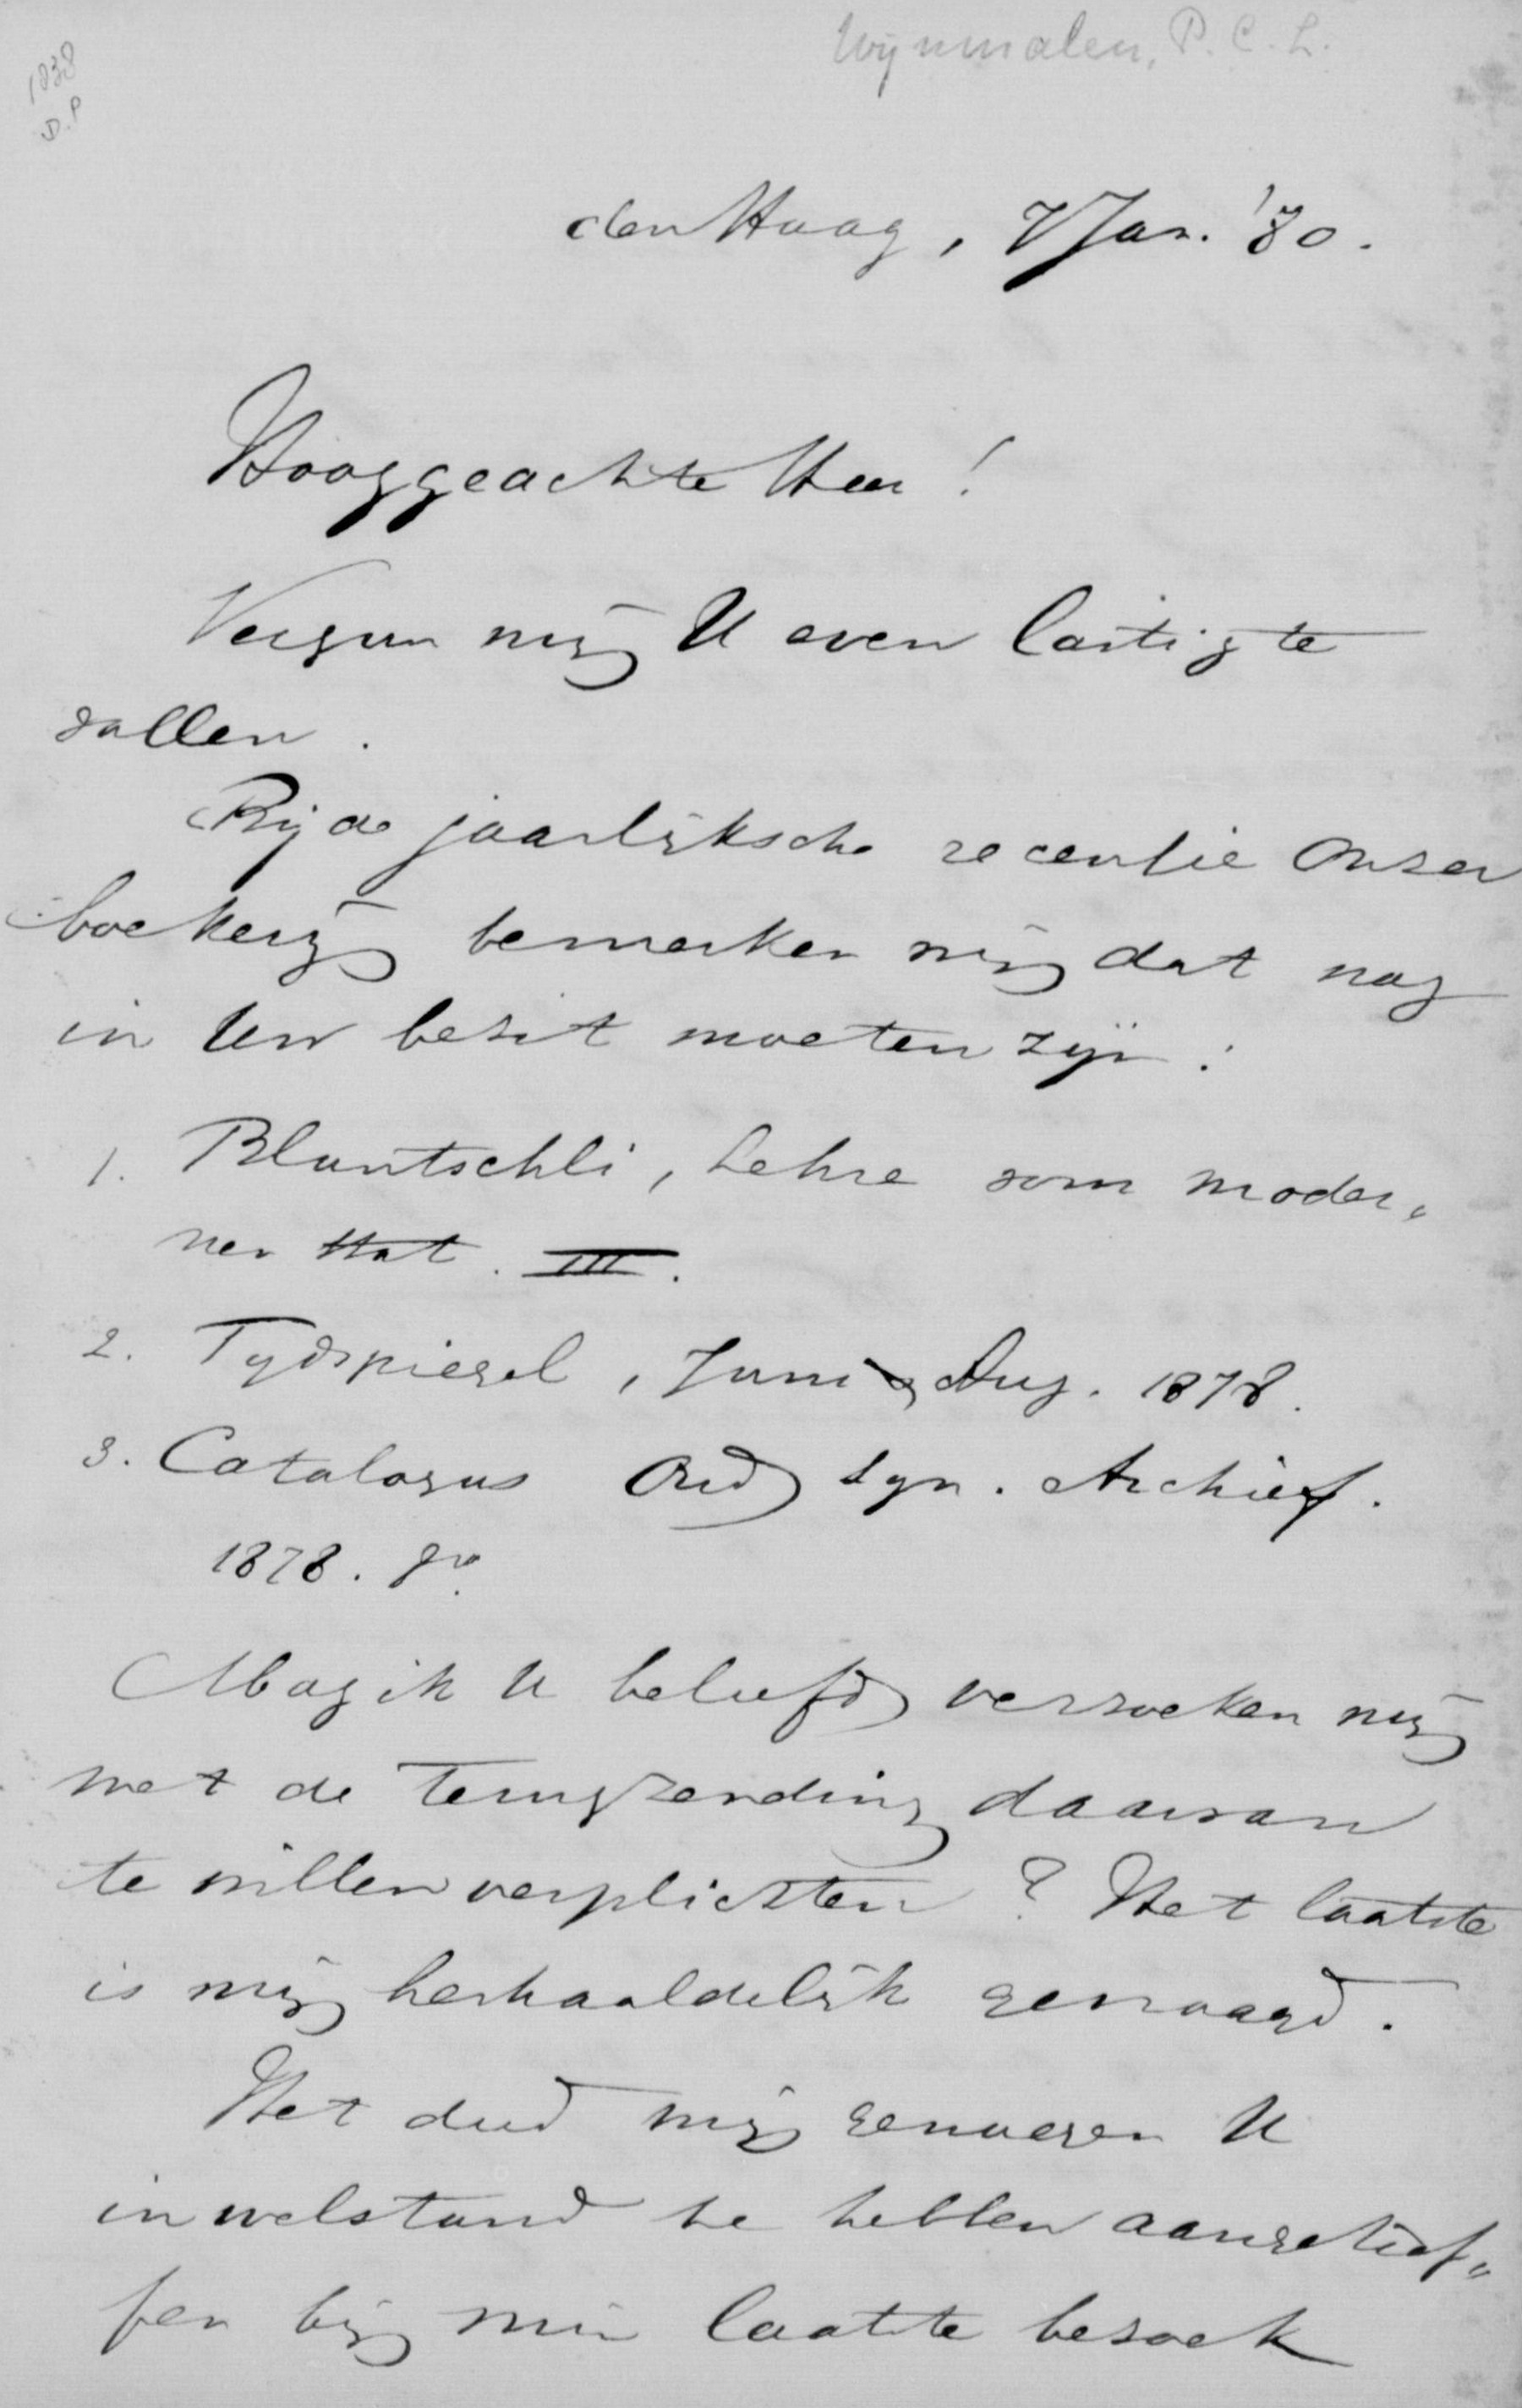 Wijnmalen, P. C. L.
1838
D.P
den Haag, 7 Jan. '80.
Hooggeachte Heer!
Vergun mij U even lastig te
vallen.
Bij de jaarlijksche recensie onzer
boekerij bemerken wij dat nog
in Uw bezit moeten zijn:
1. Bluntschli, Lehre vom moder„
nen Stat. III.
2. Tijdspiegel, Juni & Aug. 1878.
3. Catalogus Oud Syn. Archief.
1878. 8vo.
Mag ik U beleefd verzoeken mij
met de terugzending daarvan
te willen verplichten? Het laatste
is mij herhaaldelijk gevraagd.
Het deed mij genoegen U
in welstand te hebben aangetrof„
fen bij mijn laatste bezoek